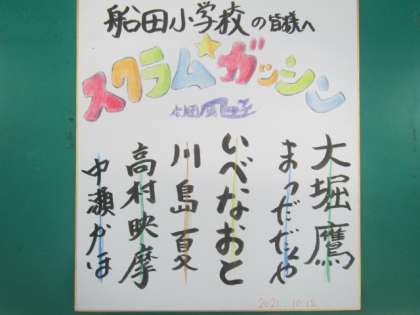 船田小学校の皆様へ
スクラム☆ガッシン
大堀鷹
まつだだいや
いべなおと
川島夏
高村映摩
中瀬かほ
2021.10.12